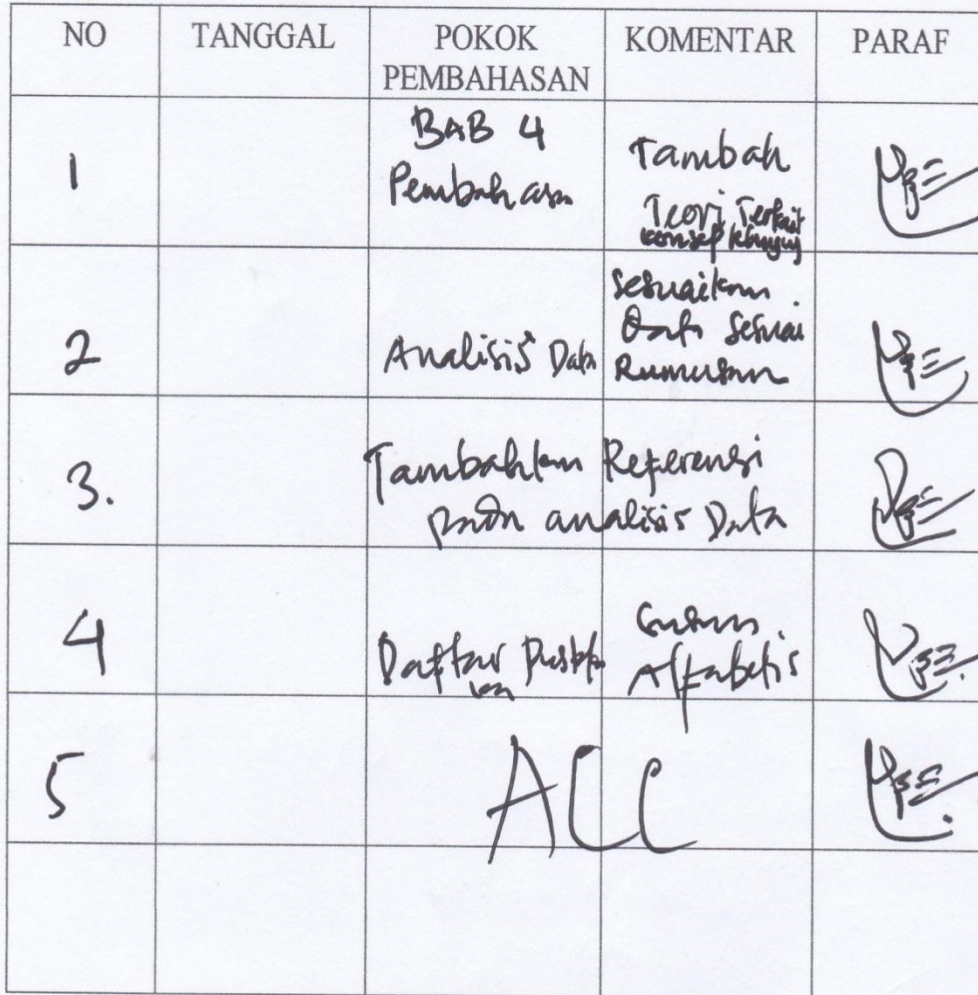 NO TANGGAL POKOK PEMBAHASAN KOMENTAR PARAF
1 BAB 4 Tambah
Pembahasan Teori Terkait
konsep
2 Analisis Data sesuaikan
Data sesuai
Rumusan
3. Tambahkan Referensi
pada analisis Data
4 Daftar Susun
Alfabetis
5 ACC